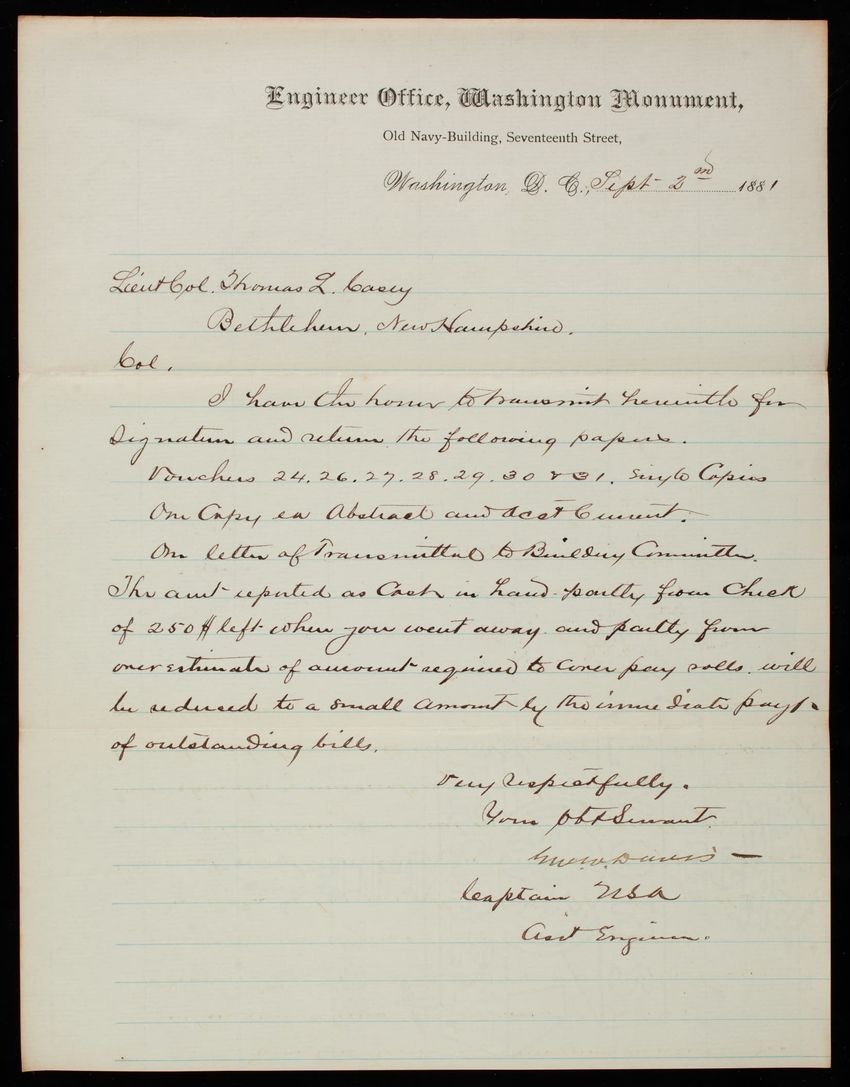 Engineer Office, Washington Monument,
Old Navy-Building, Seventeenth Street,
Washington, D. C., Sept 2nd 1881
Lieut Col. Thomas L. Casey
Bethlehem, New Hampshire.
Col.
I have the honor to transmit herewith for
signature and return the following papers.
Vouchers 24. 26. 27. 28. 29. 30 & 31. Single Copies
One Copy ea Abstract and Acct Current.
One letter of Transmittal to Building Committee.
The amt reported as Cash in hand partly from Check
of 250$ left when you went away and partly from
over estimate of amount required to cover pay rolls. will
be reduced to a small amount by the immediate payt.
of outstanding bills.
Very respectfully.
Your Obt Servant
Geo. W. Davis —
Captain USA
Asst Engineer.